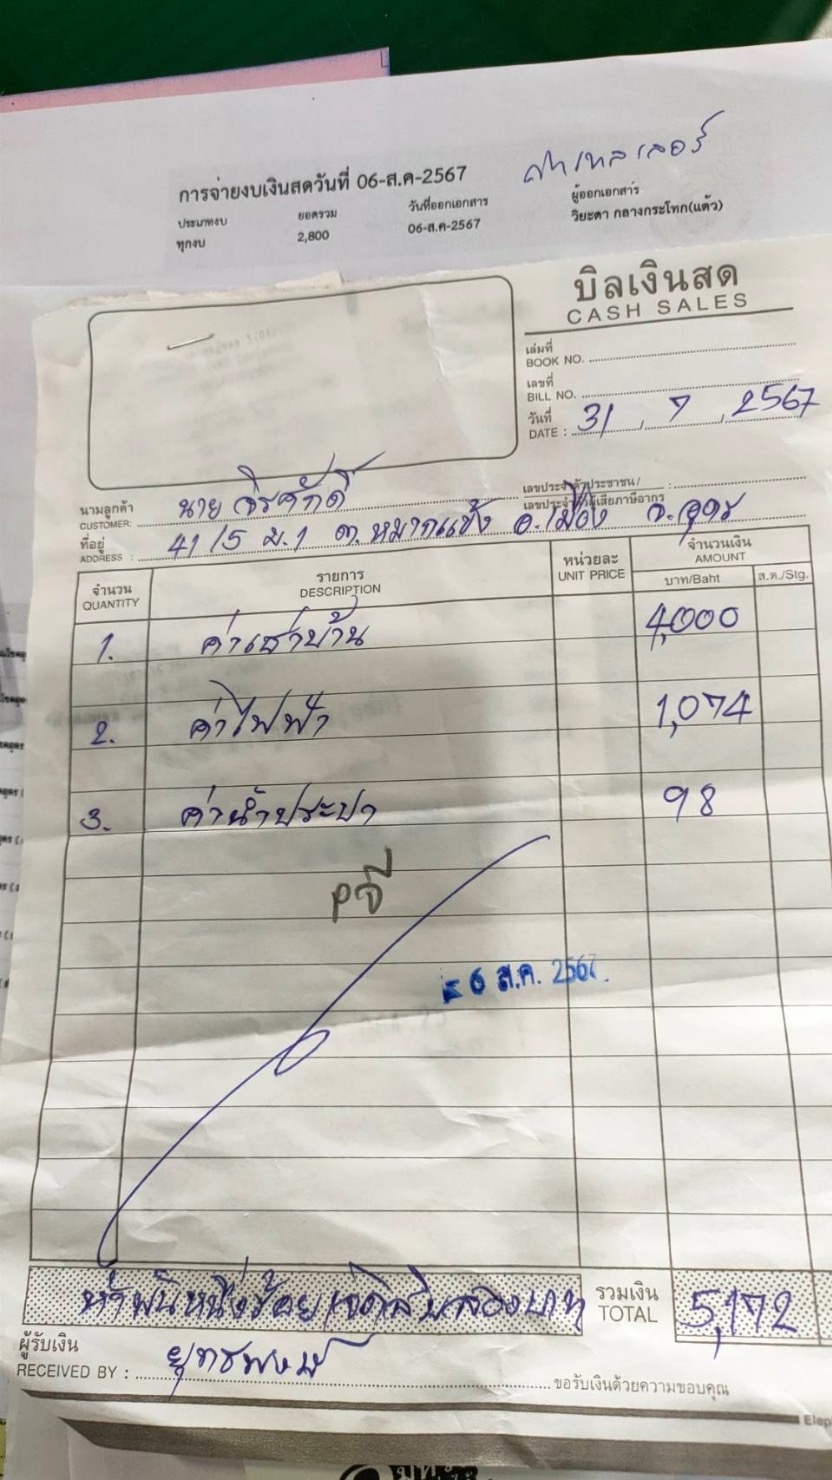 การจ่ายงบเงินสดวันที่ 06-ส.ค-2567
ประเภทงบ ยอดรวม วันที่ออกเอกสาร ผู้ออกเอกสาร
ทุกงบ 2,800 06-ส.ค-2567 วิยะดา กลางกระโทก(แต้ว)
บิลเงินสด
CASH SALES
เล่มที่
BOOK NO.
เลขที่
BILL NO.
วันที่
DATE : 31 / 7 / 2567
นามลูกค้า นาย จิรศักดิ์ เลขประจำตัวประชาชน/
CUSTOMER: เลขประจำตัวผู้เสียภาษีอากร
ที่อยู่ 41/5 ม.1 ต.หมากแข้ง อ.เมือง จ.อุดร
ADDRESS :
จำนวน รายการ หน่วยละ จำนวนเงิน
QUANTITY DESCRIPTION UNIT PRICE AMOUNT
บาท/Baht ส.ต./Stg.
1. ค่าเช่าบ้าน 4,000
2. ค่าไฟฟ้า 1,074
3. ค่าน้ำประปา 98
Pจี
6 ส.ค. 2567
ห้าพันหนึ่งร้อยเจ็ดสิบสองบาท รวมเงิน 5,172
TOTAL
ผู้รับเงิน
RECEIVED BY : ขอรับเงินด้วยความขอบคุณ